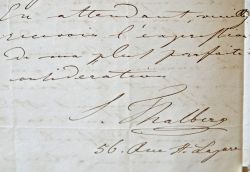 En attendant, veuillez
recevoir l'expression
de ma plus parfaite
considération
S. Thalberg
56. Rue St. Lazare